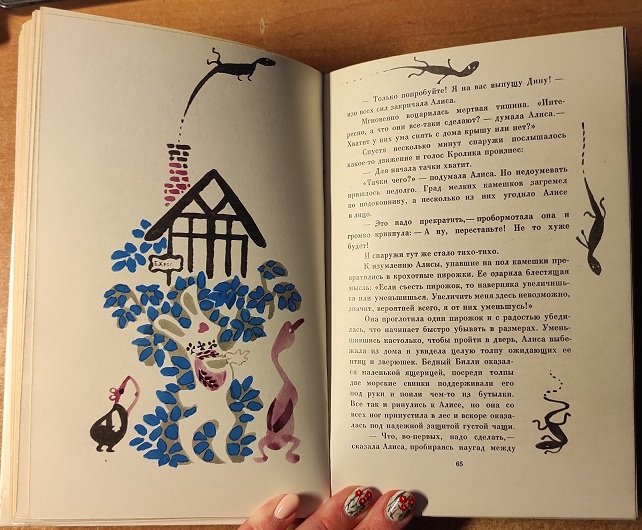 — Только попробуйте! Я на вас выпущу Дину! —
изо всех сил закричала Алиса.
Мгновенно воцарилась мертвая тишина. «Инте-
ресно, а что они все-таки сделают? — думала Алиса.—
Хватит у них ума снять с дома крышу или нет?»
Спустя несколько минут снаружи послышалось
какое-то движение и голос Кролика произнес:
— Для начала тачки хватит.
«Тачки чего?» — подумала Алиса. Но недоумевать
пришлось недолго. Град мелких камешков загремел
по подоконнику, а несколько из них угодило Алисе
в лицо.
— Это надо прекратить,— пробормотала она и
громко крикнула: — А ну, перестаньте! Не то хуже
будет!
И снаружи тут же стало тихо-тихо.
К изумлению Алисы, упавшие на пол камешки пре-
вратились в крохотные пирожки. Ее озарила блестящая
мысль: «Если съесть пирожок, то наверняка увеличишь-
ся или уменьшишься. Увеличить меня здесь невозможно,
значит, вероятней всего, я от них уменьшусь!»
Она проглотила один пирожок и с радостью убеди-
лась, что начинает быстро убывать в размерах. Умень-
шившись настолько, чтобы пройти в дверь, Алиса выбе-
жала из дома и увидела целую толпу ожидающих ее
птиц и зверюшек. Бедный Билли оказал-
ся маленькой ящерицей, посреди толпы
две морские свинки поддерживали его
под руки и поили чем-то из бутылки.
Все так и ринулись к Алисе, но она со
всех ног припустила в лес и вскоре оказа-
лась под надежной защитой густой чащи.
— Что, во-первых, надо сделать,—
сказала Алиса, пробираясь наугад между
65